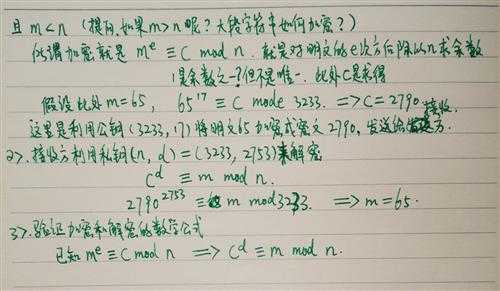 且 m < n (提问,如果 m > n 呢? 大错字符串如何加密?)
所谓加密就是 m^e ≡ C mod n. 就是对明文的e次方后除以n求余数
是余数之一?但不是唯一. 此处C是求得
假设此处 m = 65, 65^17 ≡ C mode 3233. => C = 2790 接收
这里是利用公钥 (3233, 17) 将明文65加密成密文 2790, 发送给方.
2>. 接收方利用私钥(n, d) = (3233, 2753)来解密
C^d ≡ m mod n.
2790^2753 ≡ m mod 3233. => m = 65.
3>. 验证加密和解密的数学公式
已知 m^e ≡ C mod n => C^d ≡ m mod n.